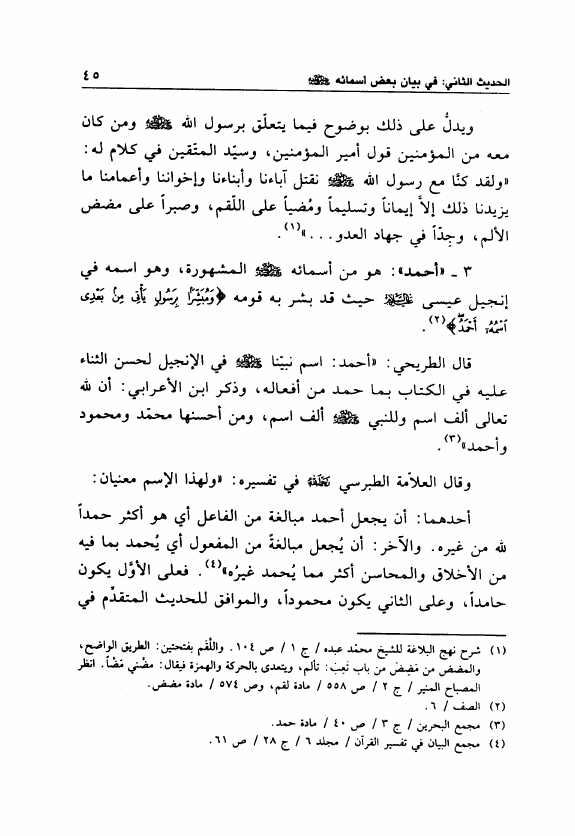 الحديث الثاني: في بيان بعض أسمائه ﷺ ٤٥
ويدلُّ على ذلك بوضوح فيما يتعلّق برسول الله ﷺ ومن كان
معه من المؤمنين قول أمير المؤمنين، وسيّد المتّقين في كلام له:
«ولقد كنَّا مع رسول الله ﷺ نقتل آباءنا وأبناءنا وإخواننا وأعمامنا ما
يزيدنا ذلك إلاَّ إيماناً وتسليماً ومُضياً على اللّقم، وصبراً على مضض
الألم، وجِدّاً في جهاد العدو...»(١).
٣ ـ «أحمد»: هو من أسمائه ﷺ المشهورة، وهو اسمه في
إنجيل عيسى عليه السلام حيث قد بشر به قومه ﴿وَمُبَشِّرًا بِرَسُولٍ يَأْتِي مِنْ بَعْدِي
اسْمُهُ أَحْمَدُ﴾(٢).
قال الطريحي: «أحمد: اسم نبيّنا ﷺ في الإنجيل لحسن الثناء
عليه في الكتاب بما حمد من أفعاله، وذكر ابن الأعرابي: أن لله
تعالى ألف اسم وللنبي ﷺ ألف اسم، ومن أحسنها محمّد ومحمود
وأحمد»(٣).
وقال العلاّمة الطبرسي في تفسيره: «ولهذا الإسم معنيان:
أحدهما: أن يجعل أحمد مبالغة من الفاعل أي هو أكثر حمداً
لله من غيره. والآخر: أن يُجعل مبالغةً من المفعول أي يُحمد بما فيه
من الأخلاق والمحاسن أكثر مما يُحمد غيرُه»(٤). فعلى الأوَّل يكون
حامداً، وعلى الثاني يكون محموداً، والموافق للحديث المتقدِّم في
(١) شرح نهج البلاغة للشيخ محمّد عبده / ج ١ / ص ١٠٤. واللَّقَم بفتحتين: الطريق الواضح،
والمضض من مَضِضَ من باب تَعِبَ: تألم، ويتعدى بالحركة والهمزة فيقال: مضّني مَضّاً. انظر
المصباح المنير / ج ٢ / ص ٥٥٨ / مادة لقم، وص ٥٧٤ / مادة مضض.
(٢) الصف / ٦.
(٣) مجمع البحرين / ج ٣ / ص ٤٠ / مادة حمد.
(٤) مجمع البيان في تفسير القرآن / مجلد ٦ / ج ٢٨ / ص ٦١.